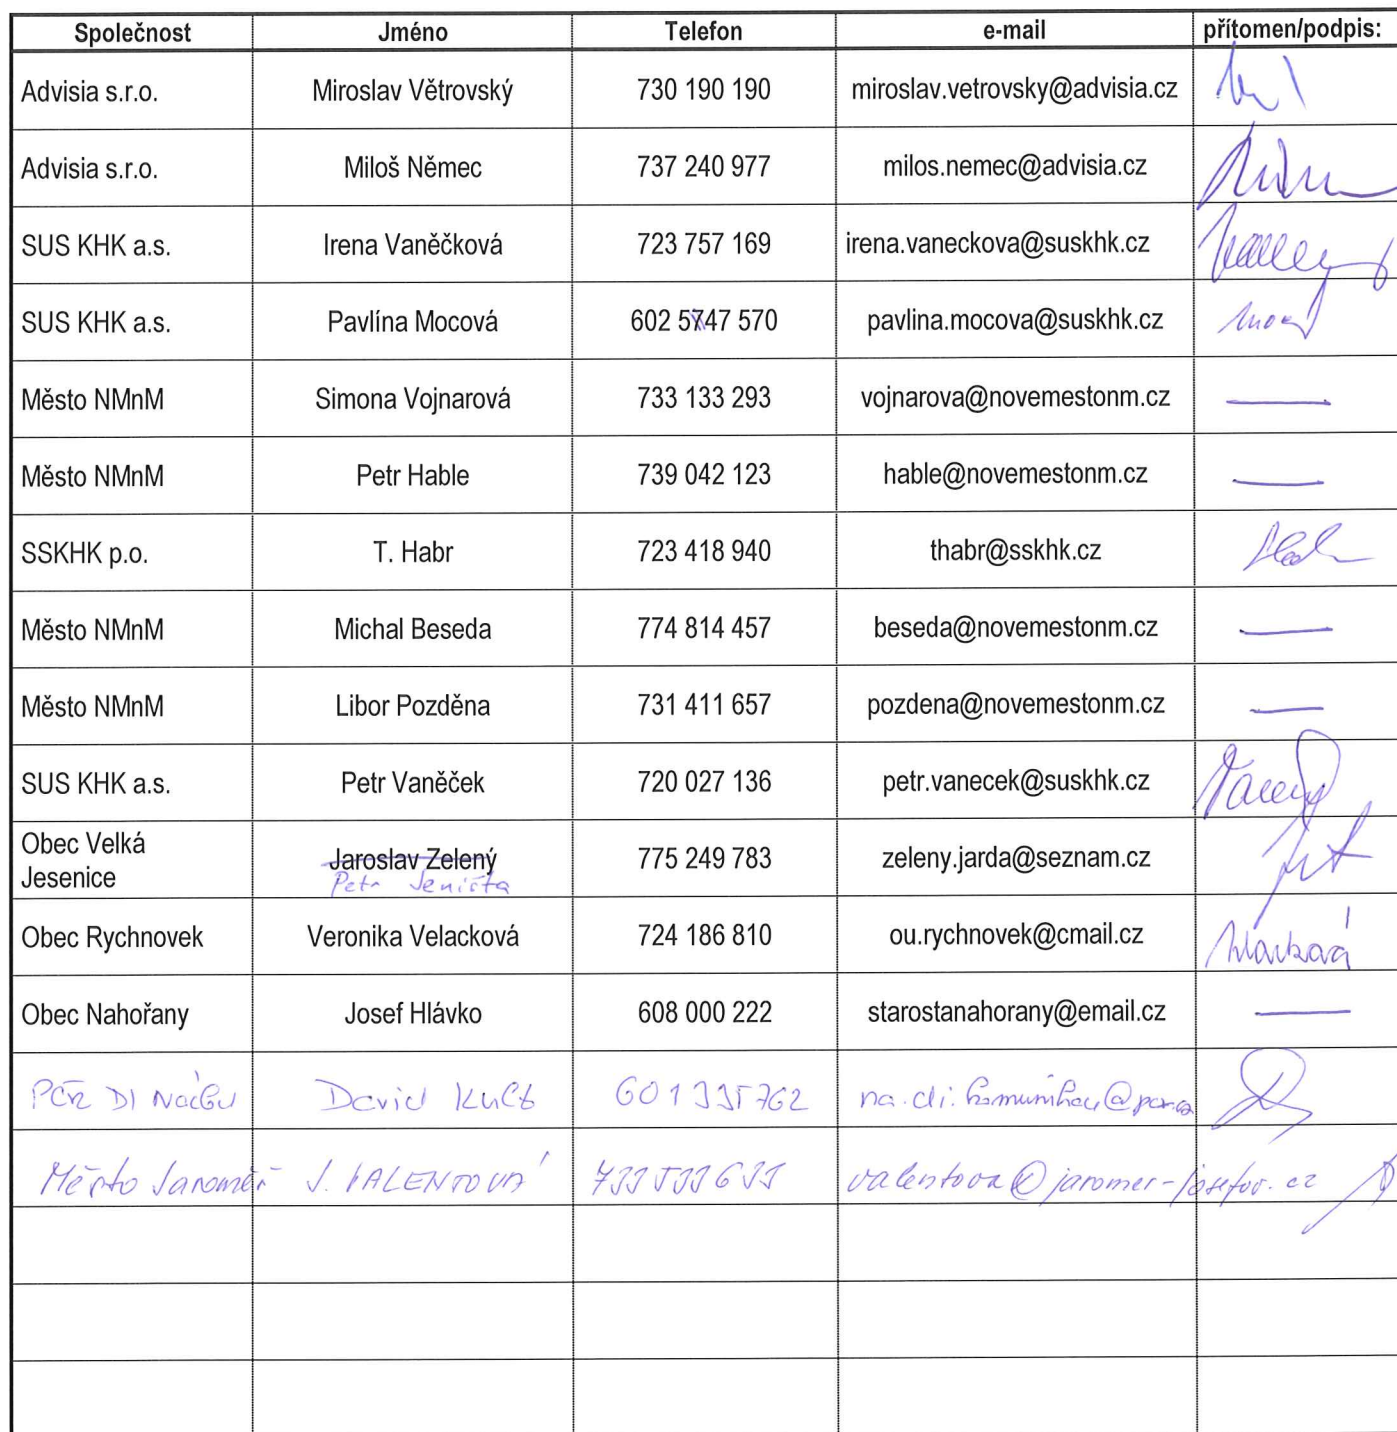 Společnost Jméno Telefon e-mail přítomen/podpis:
Advisia s.r.o. Miroslav Větrovský 730 190 190 miroslav.vetrovsky@advisia.cz
Advisia s.r.o. Miloš Němec 737 240 977 milos.nemec@advisia.cz
SUS KHK a.s. Irena Vaněčková 723 757 169 irena.vaneckova@suskhk.cz
SUS KHK a.s. Pavlína Mocová 602 5747 570 pavlina.mocova@suskhk.cz
Město NMnM Simona Vojnarová 733 133 293 vojnarova@novemestonm.cz —
Město NMnM Petr Hable 739 042 123 hable@novemestonm.cz —
SSKHK p.o. T. Habr 723 418 940 thabr@sskhk.cz
Město NMnM Michal Beseda 774 814 457 beseda@novemestonm.cz —
Město NMnM Libor Pozděna 731 411 657 pozdena@novemestonm.cz —
SUS KHK a.s. Petr Vaněček 720 027 136 petr.vanecek@suskhk.cz
Obec Velká
Jesenice Jaroslav Zelený 775 249 783 zeleny.jarda@seznam.cz
Petr Jeništa
Obec Rychnovek Veronika Velacková 724 186 810 ou.rychnovek@cmail.cz
Obec Nahořany Josef Hlávko 608 000 222 starostanahorany@email.cz —
PČR DI David
Město Jaroměř J. VALENTOVÁ valentova@jaromer-josefov.cz